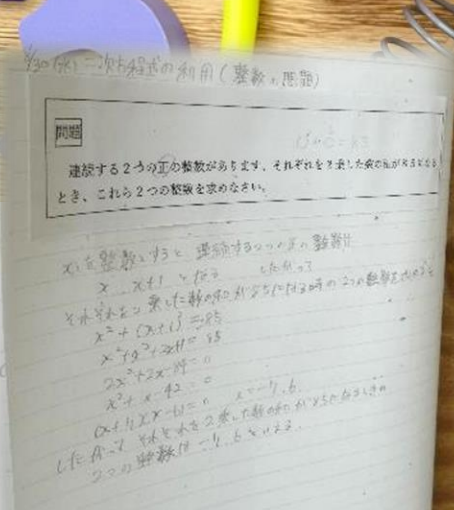 二次方程式の利用(整数の問題)
問題
連続する2つの正の整数があります、それぞれを2乗した数の和が85になる
とき、これら2つの整数を求めなさい。
xを整数とすると 連続する2つの正の整数は
x x+1 となる したがって
それぞれを2乗した数の和が85になる時の2つの整数を
x²+(x+1)²=85
x²+x²+2x+1=85
2x²+2x-84=0
x²+x-42=0
(x+7)(x-6)=0 x=-7,6
したがって それぞれを2乗した数の和が85になるときの
2つの整数は -7,6といえる.